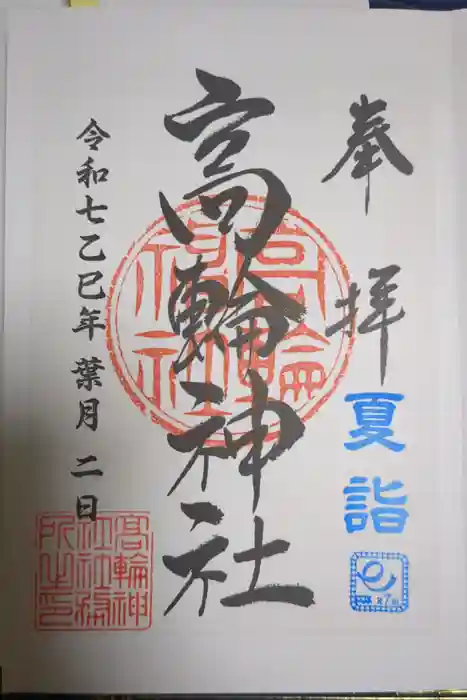 奉拝
夏詣
高輪神社
高輪神社
令和七乙巳年 葉月 二日
高輪神社社務所之印